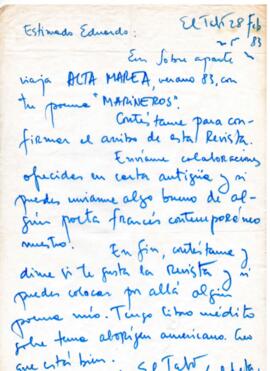 El Tabo 28 feb
83
Estimado Eduardo:
En sobre aparte
viaja ALTA MAREA, verano 83, con
tu poema "MARINEROS".
Contéstame para con-
firmar el arribo de esta Revista.
Envíame colaboraciones
ofrecidas en carta antigüa y si
puedes enviarme algo bueno de al-
gún poeta francés contemporáneo
nuestro.
En fin, contéstame y
dime si te gusta la Revista y si
puedes colocar por allá algún
poema mío. Tengo libro inédito
sobre tema aborigen americano. Creo
que está bien.
El Tabo